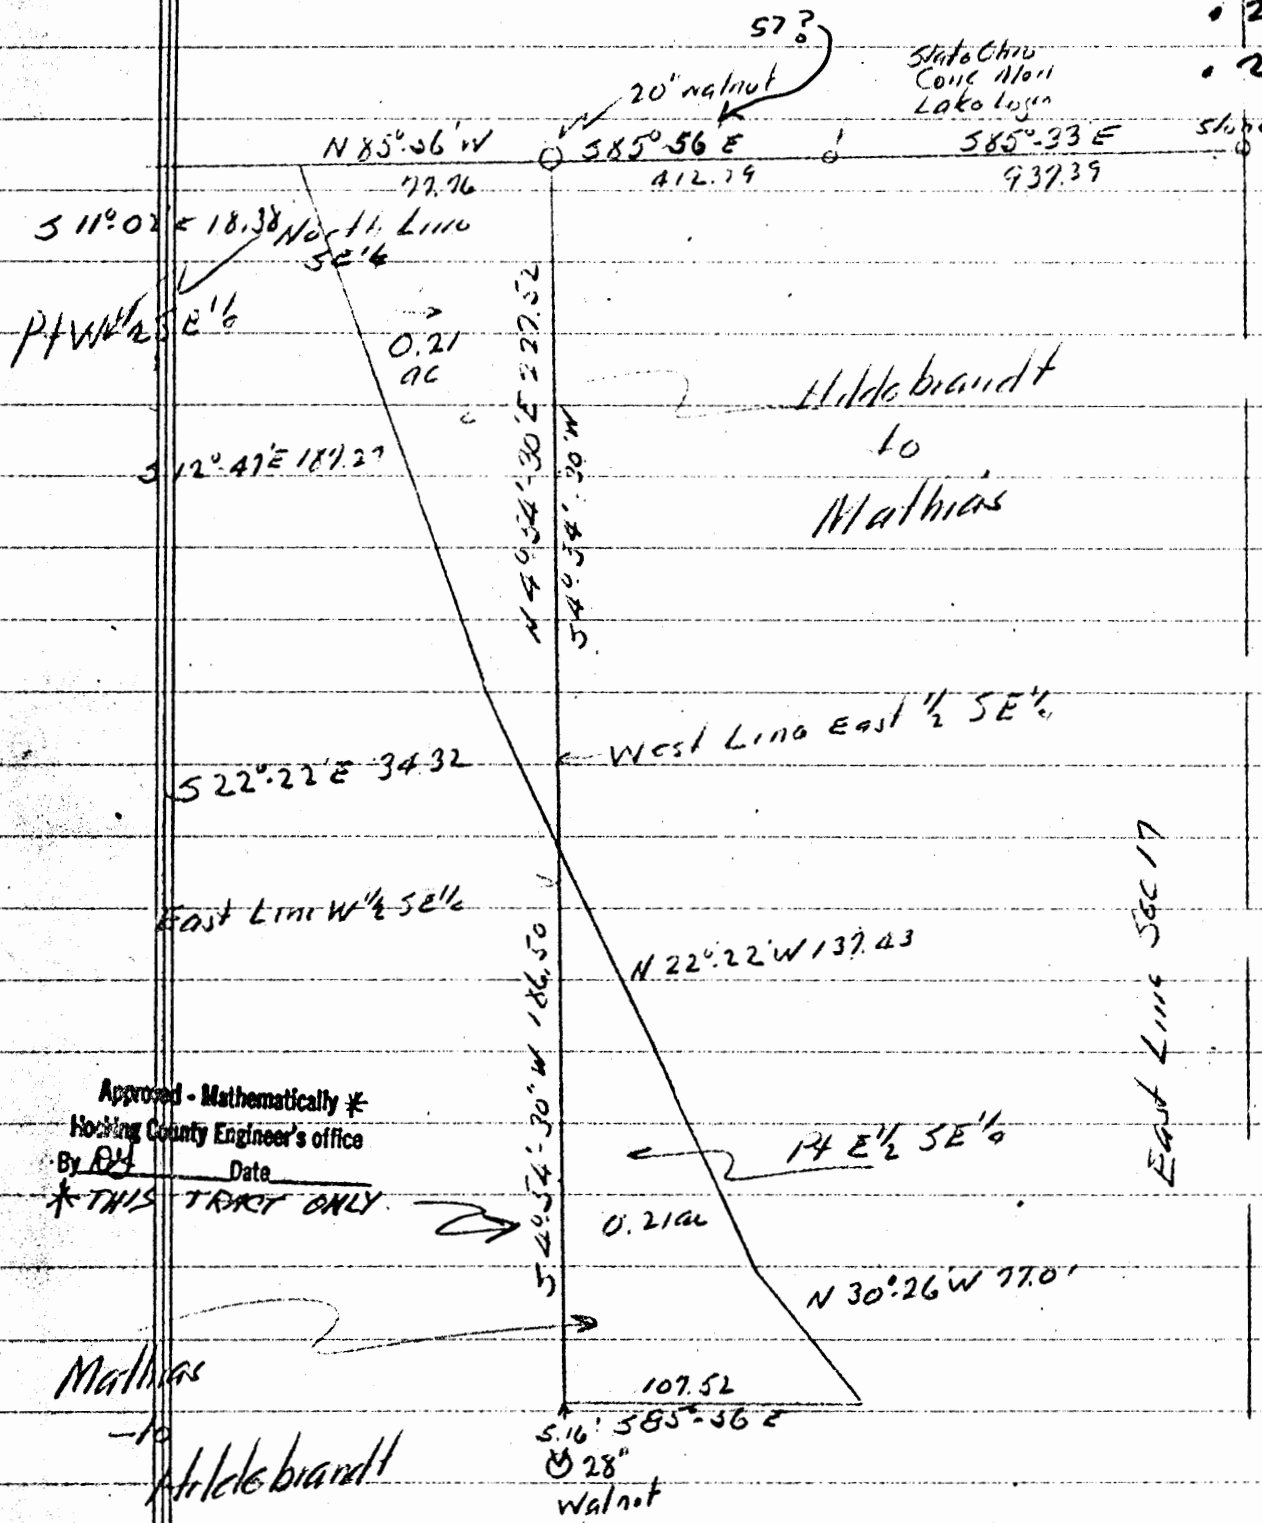 57?
State Ohio
Conc Mon
Lake Logan
20" walnut
N 85°-56' W
S85°-56' E
S85°-33' E
77.76
412.79
937.39
S 11°-02' E 18.38
North Line
SE 1/4
Pt W 1/2 SE 1/4
0.21
ac
N 4°-54'-30" E 227.52
S 4°-54'-30" W
Hildebrandt
to
Mathias
S 12°-47' E 187.27
West Line East 1/2 SE 1/4
S 22°-22' E 34.32
East Line W 1/2 SE 1/4
N 22°-22' W 137.43
East Line Sec 17
S 4°-54'-30" W 186.50
Approved - Mathematically *
Hocking County Engineer's office
By Date
* THIS TRACT ONLY
Pt E 1/2 SE 1/4
0.21 ac
N 30°-26' W 77.01
Mathias
to
Hildebrandt
107.52
S85°-56' E
5.16'
28"
Walnut